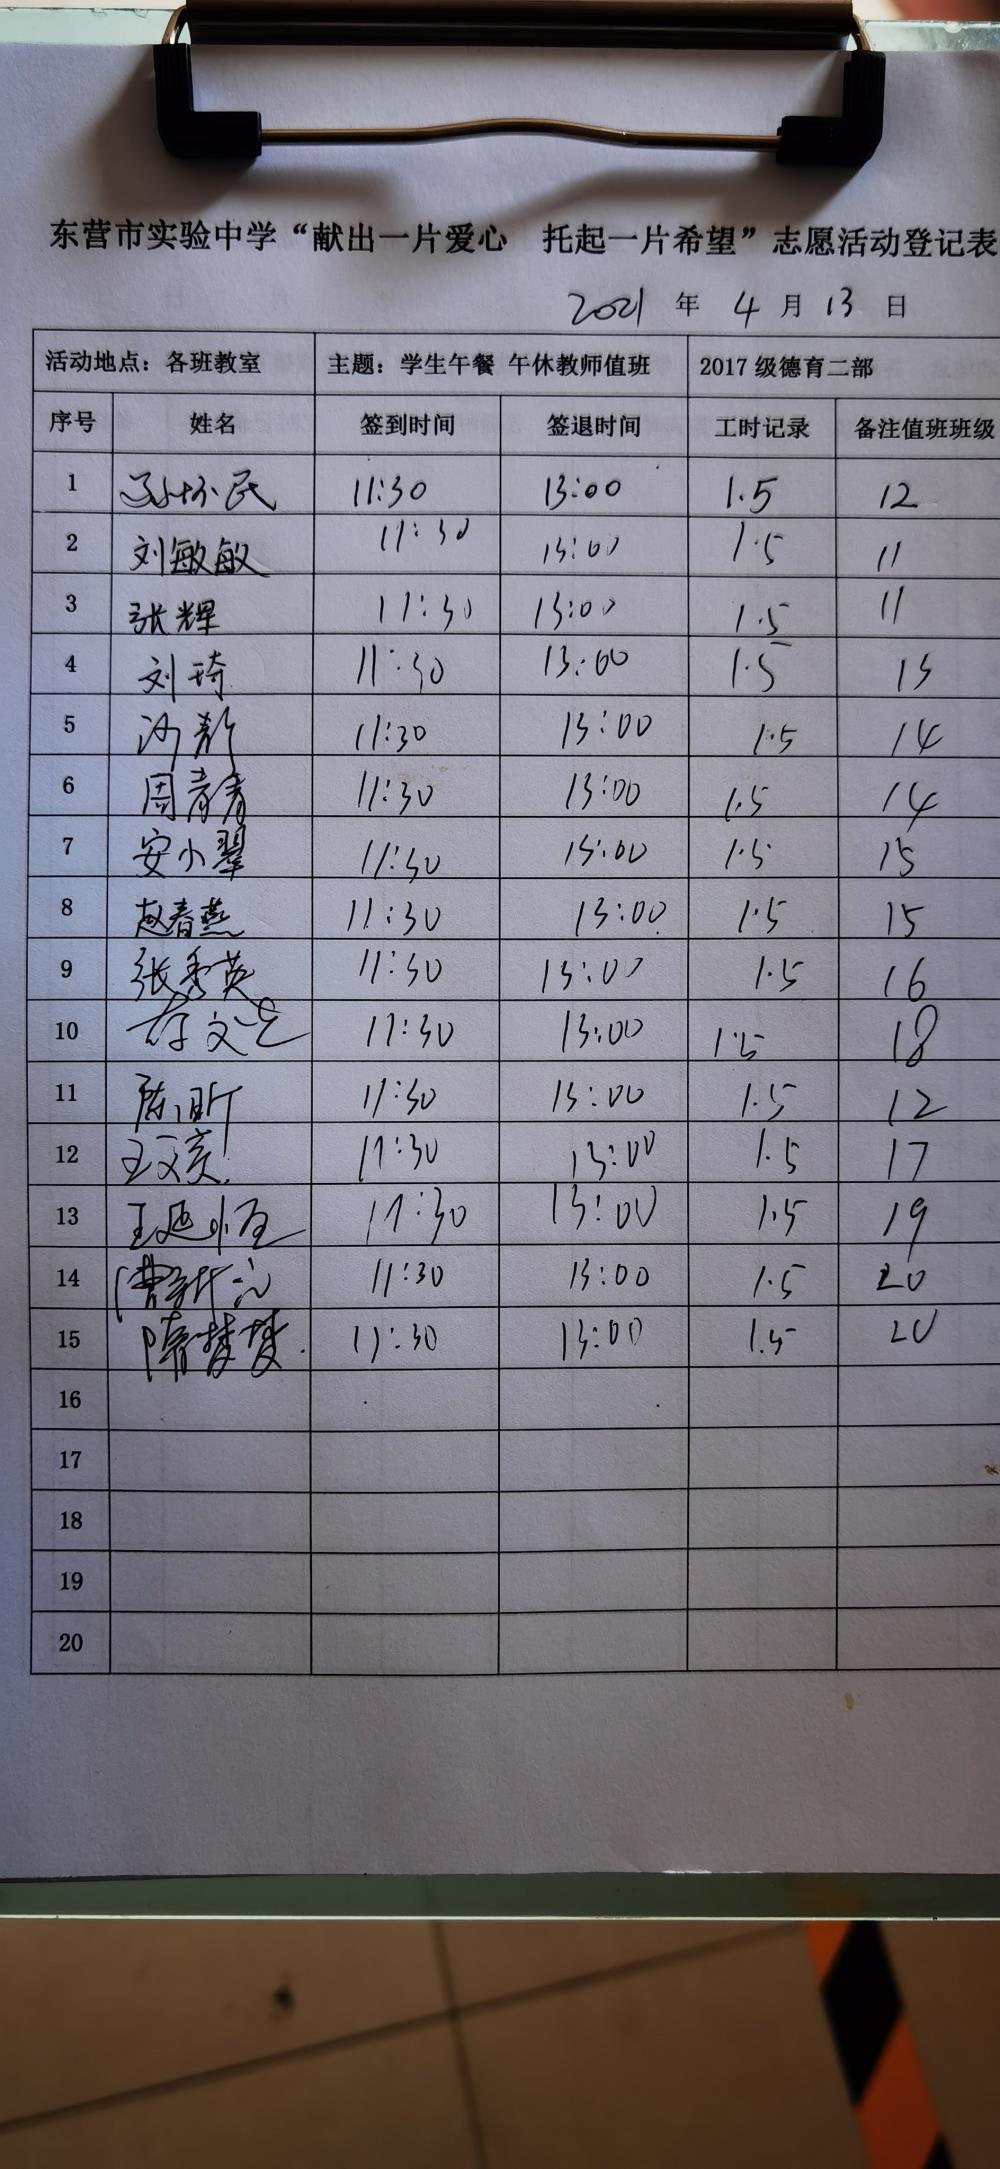 东营市实验中学“献出一片爱心 托起一片希望”志愿活动登记表
2021 年 4 月 13 日
活动地点：各班教室 主题：学生午餐 午休教师值班 2017 级德育二部
序号 姓名 签到时间 签退时间 工时记录 备注值班班级
1 民 11:30 13:00 1.5 12
2 刘敏敏 11:30 13:00 1.5 11
3 张辉 11:30 13:00 1.5 11
4 刘琦 11:30 13:00 1.5 13
5 11:30 13:00 1.5 14
6 周青青 11:30 13:00 1.5 14
7 安小翠 11:30 13:00 1.5 15
8 赵春燕 11:30 13:00 1.5 15
9 张秀英 11:30 13:00 1.5 16
10 11:30 13:00 1.5 18
11 陈昕 11:30 13:00 1.5 12
12 11:30 13:00 1.5 17
13 王延恒 11:30 13:00 1.5 19
14 11:30 13:00 1.5 20
15 隋梦梦 11:30 13:00 1.5 20
16
17
18
19
20